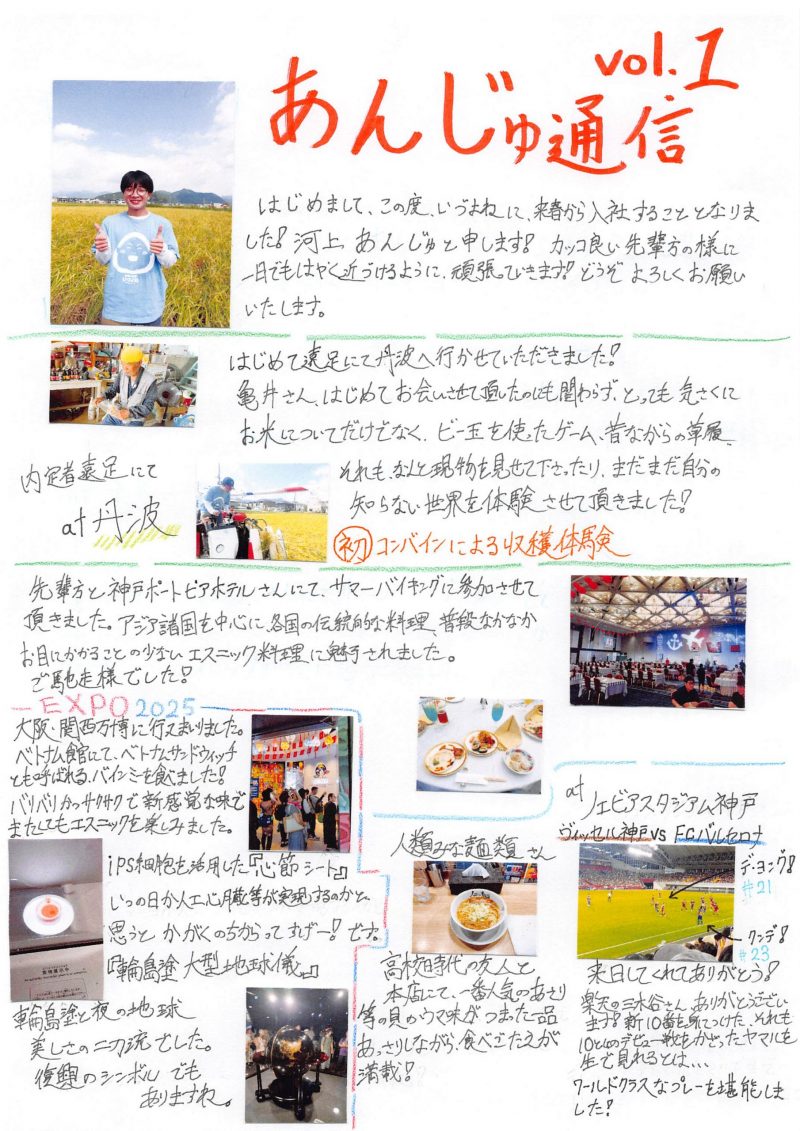 あんじゅ通信 vol.1
はじめまして、この度、いづよねに、来春から入社することとなりま
した！河上 あんじゅと申します！ カッコ良い先輩方の様に
一日でもはやく近づけるように、頑張っていきます！どうぞ よろしくお願い
いたします。
はじめて遠足にて丹波へ行かせていただきました！
亀井さん、はじめてお会いさせて頂したのにも関わらず、とっても 気さくに
お米についてだけでなく、ビー玉を使ったゲーム、昔ながらの草履、
それも、なんと現物を見せて下さったり、まだまだ自分の
知らない世界を体験させて頂きました！
内定者遠足にて
at 丹波
初 コンバインによる収穫体験
先輩方と神戸ポートピアホテルさんにて、サマーバイキングに参加させて
頂きました。アジア諸国を中心に、各国の伝統的な料理、普段なかなか
お目にかかることの少ないエスニック料理に魅了されました。
ご馳走様でした！
EXPO 2025
大阪・関西万博に行ってまいりました。
ベトナム館にて、ベトナムサンドウィッチ
とも呼ばれる、バインミーを食べました！
バリバリかつサクサクで新感覚な味で
またしてもエスニックを楽しみました。
iPS細胞を活用した『心筋シート』
いつの日か人工心臓等が実現するのかと
思うと かがくのちからってすげー！です。
『輪島塗 大型地球儀』
輪島塗と夜の地球
美しさの二刀流でした。
復興のシンボルでも
ありますね。
人類みな麺類さん
高校時代の友人と
本店にて、一番人気のあさり
等の貝のウマ味がつまった一品
あっさりしながら、食べごたえが
満載！
at
ノエビアスタジアム神戸
ヴィッセル神戸 vs FCバルセロナ
デ・ヨング！
#21
クンデ！
#23
来日してくれてありがとう！
楽天の三木谷さん ありがとうござい
ます！新10番を背につけた、それも
10としてのデビュー戦をかざったヤマルを
生で見れるとは…
ワールドクラスなプレーを堪能しま
した！